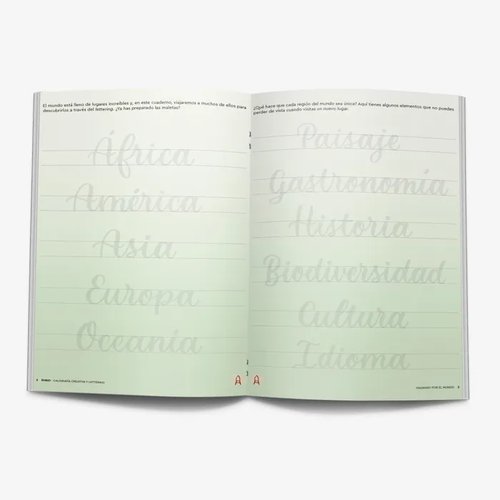 El mundo está lleno de lugares increíbles y, en este cuaderno, viajaremos a muchos de ellos para
descubrirlos a través del lettering. ¿Ya has preparado las maletas?
África
América
Asia
Europa
Oceanía
CALIGRAFÍA CREATIVA Y LETTERING
¿Qué hace que cada región del mundo sea única? Aquí tienes algunos elementos que no puedes
perder de vista cuando visitas un nuevo lugar.
Paisaje
Gastronomía
Historia
Biodiversidad
Cultura
Idioma
VIAJANDO POR EL MUNDO